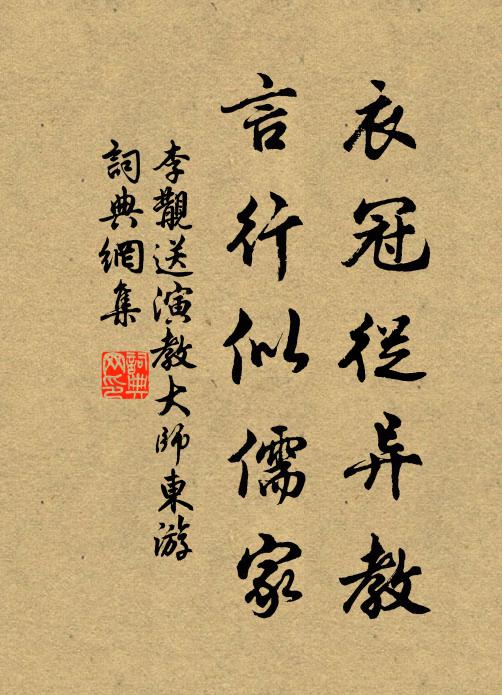 衣冠從异教
言行似儒家
李覯送演教大師東游
詞典網集
詞典網印